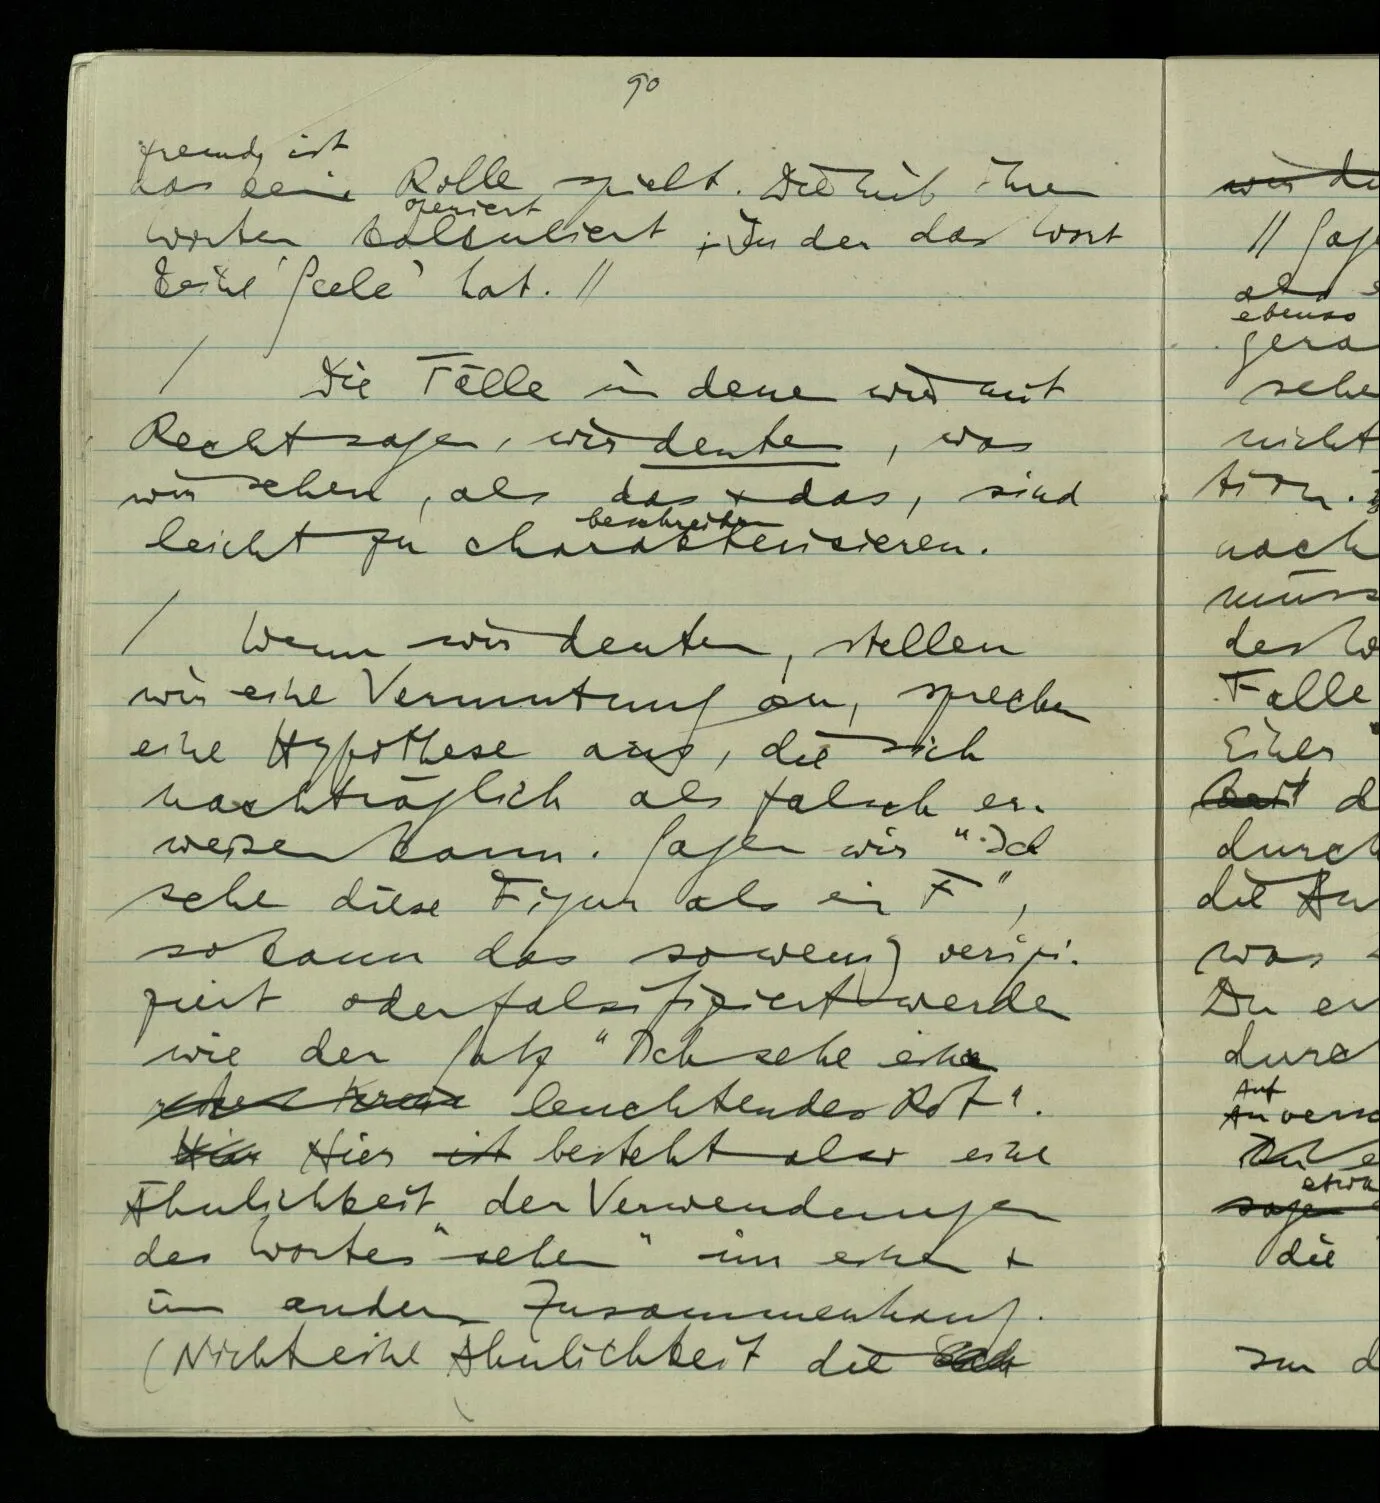 90
fremd ist
das seine Rolle spielt. Die mit ihren
operiert
Worten kalkuliert ; In der das Wort
keine 'Seele' hat. //
/ Die Fälle in denen wir mit
Recht sagen, wir deuten, was
wir sehen, als das + das, sind
beschreiben
leicht zu charakterisieren.
/ Wenn wir deuten, stellen
wir eine Vermutung an, sprechen
eine Hypothese aus, die sich
nachträglich als falsch er-
weisen kann. Sagen wir "Ich
sehe diese Figur als ein F",
so kann das sowenig verifi-
ziert oder falsifiziert werden
wie der Satz "Ich sehe ein
leuchtendes Rot".
Hier Hier ist besteht also eine
Ähnlichkeit der Verwendungen
des Wortes "sehen" im einen +
im andern Zusammenhang.
(Nicht eine Ähnlichkeit die
wir
// Sag
als
ebenso
gera
sehe
nicht
tion.
nach
müss
des W
Falle
Einer
d
durch
die An
was
Du er
durch
Auf
etwa
sagen
die
zu d